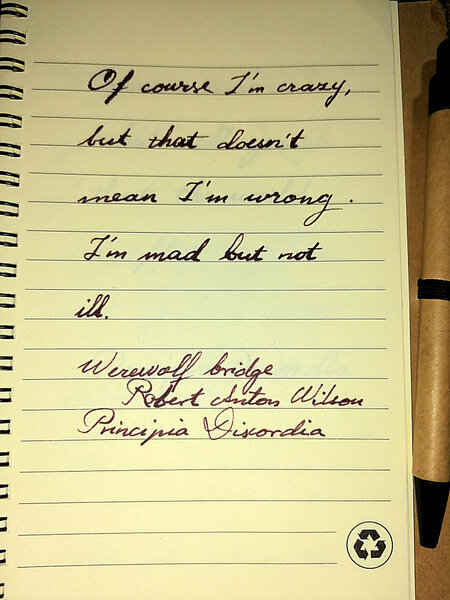 Of course I'm crazy,
but that doesn't
mean I'm wrong.
I'm mad but not
ill.
Werewolf bridge
Robert Anton Wilson
Principia Discordia